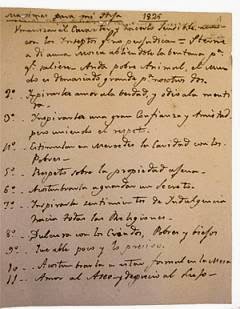 Maximas para mi Hija 1825
1º Humanizar el Caracter y hacerlo sensible, aun
con los Insectos q. no perjudican. Sterne
a dicho a una Mosca abriendole la ventana pª
qº saliese: Anda pobre Animal, el Mun-
do es demasiado grande pª nosotros dos.
2º. Inspirarla amor a la verdad, y odio a la menti-
ra.
3º. Inspirarla una gran Confianza y Amistad
pero uniendo el respeto.
4º. Estimular en Mercedes la Caridad con los
Pobres.
5º. Respeto sobre la propiedad agena.
6º. Acostumbrarla a guardar un Secreto.
7º. Inspirarla sentimientos de Indulgencia
hacia todas las Religiones.
8º. Dulzura con los Criados, Pobres y Viejos
9º. Que hable poco y lo preciso.
10. Acostumbrarla a estar formal en la Mesa
11. Amor al Aseo y desprecio al Lujo.